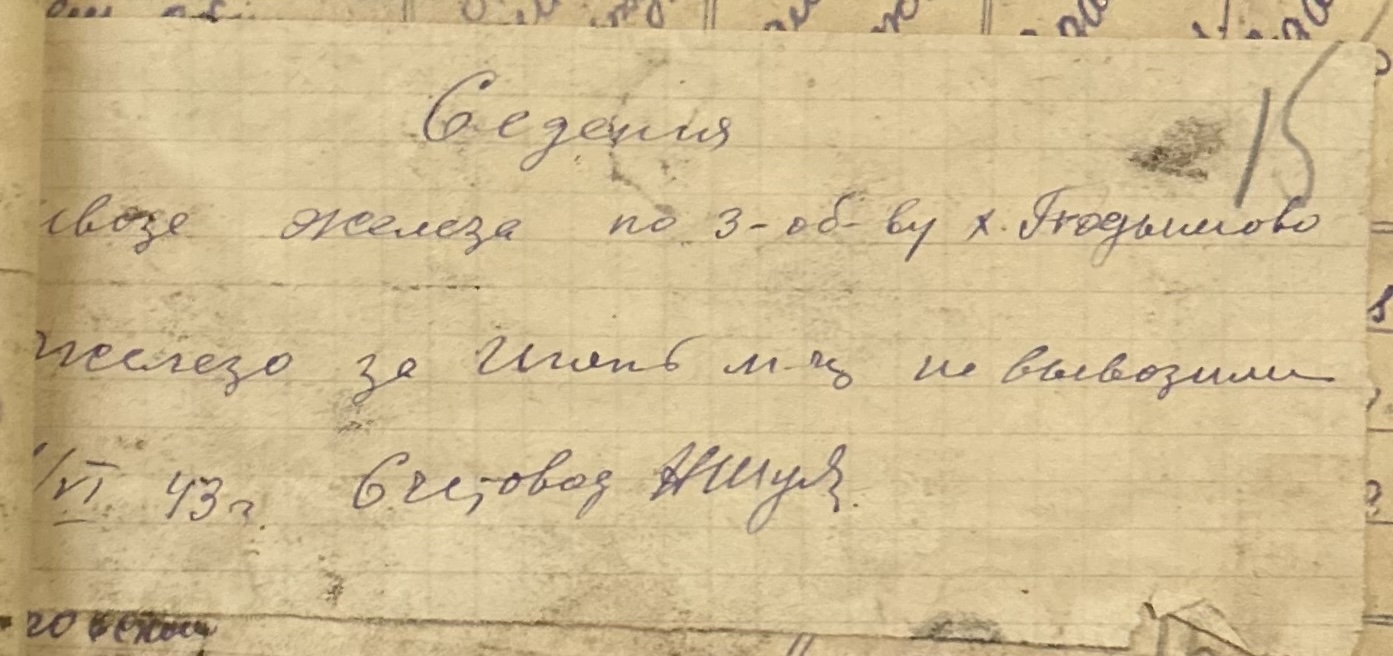 Седения
15
ывозе железа по 3-об-ву х. Подымово
Железо за Июнь м-ц не вывозили
/VI 43 г. Счетовод